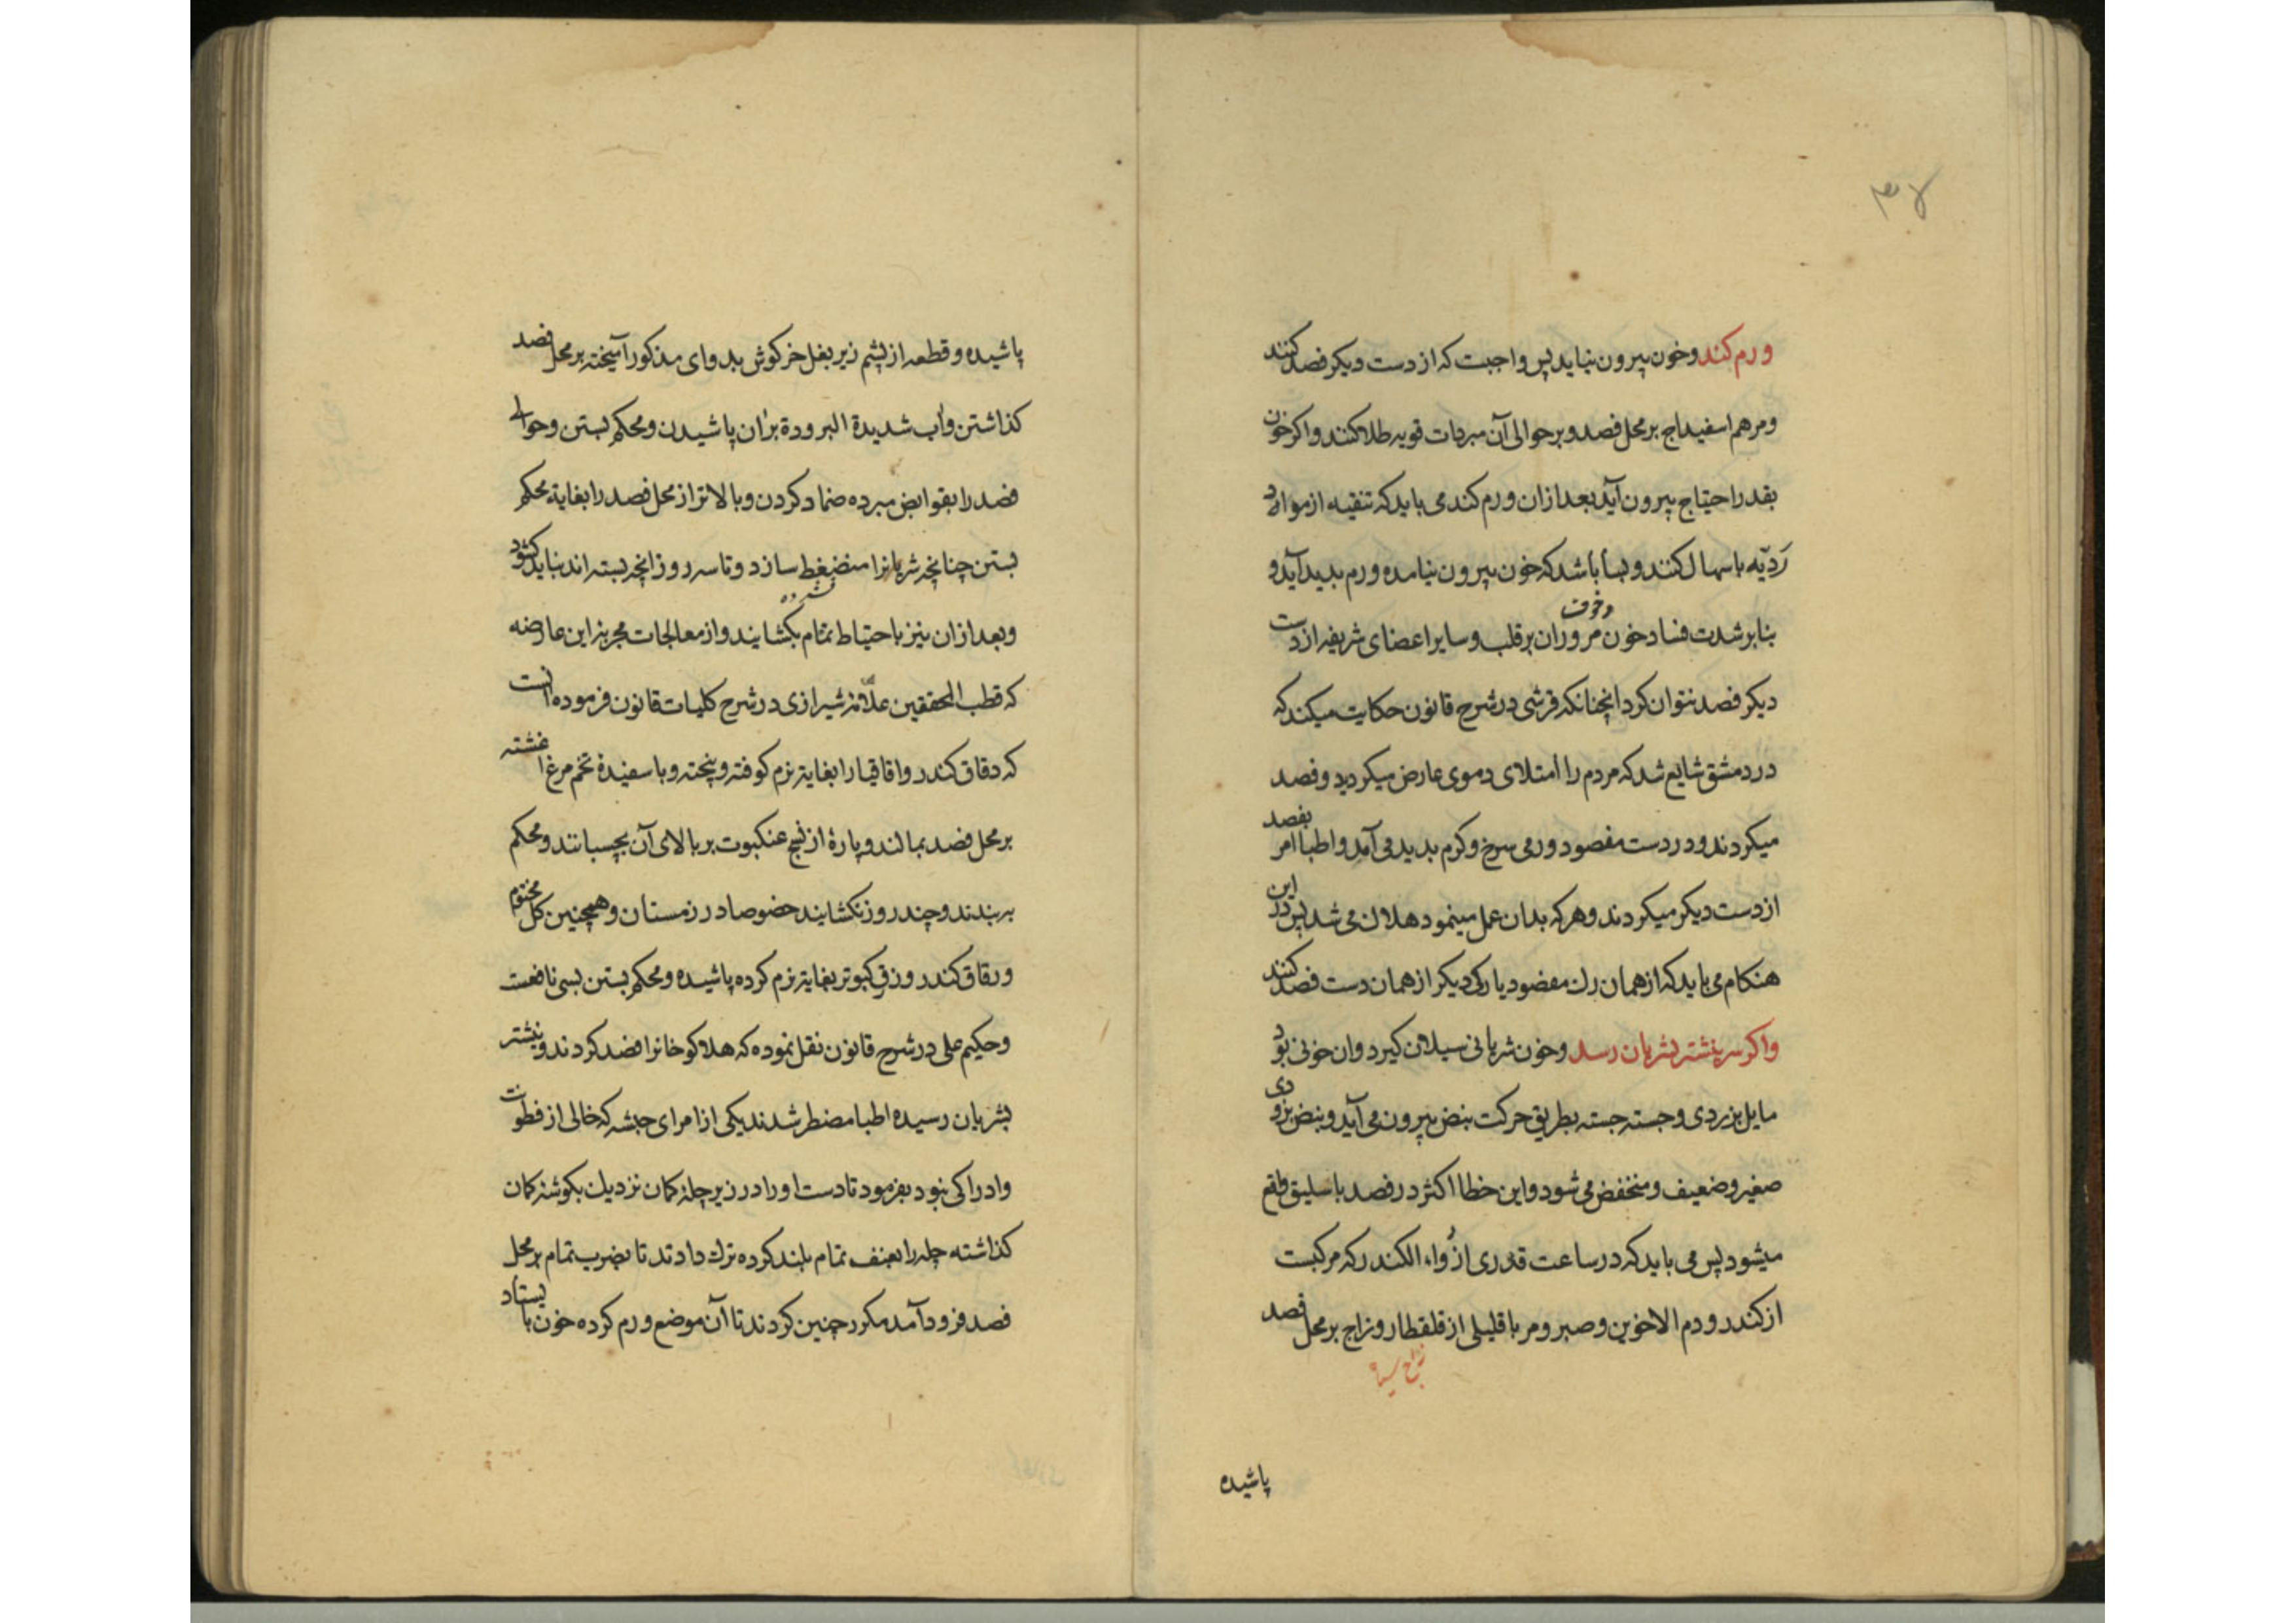 ورم کند وخون بیرون نیاید پس واجبست که از دست دیکر فصد کنند
ومرهم اسفیداج بر محل فصد وبر حوالی آن مبردات قویه طلا کنند واکر خون
بقدر احتیاج بیرون آید بعد ازان ورم کند می باید که تنقیه از مواد
ردیّه باسهال کنند وبسا باشد که خون بیرون نیامده ورم بدید آید و
وخوف
بنابر شدت فساد خون مروران بر قلب وسایر اعضای شریفه از دست
دیکر فصد نتوان کرد انچنانکه قرشی در شرح قانون حکایت میکند که
در دمشق شایع شد که مردم را امتلای دموی عارض میکردید وفصد
میکردند ودر دست مفصود ورمی سرخ وکرم بدید می آمد واطبا امر بفصد
از دست دیکر میکردند وهرکه بدان عمل مینمود هلاک می شد پس درین
هنکام می باید که از همان رک مفصود یا رکی دیکر از همان دست فصد کنند
واکر سر نیشتر بشریان رسد وخون شریانی سیلان کیرد وان خونی بود
مایل بزردی وجسته جسته بطریق حرکت نبض بیرون می آید ونبض بزودی
صغیر وضعیف ومنخفض می شود واین خطا اکثر در فصد باسلیق واقع
میشود پس می باید که در ساعت قدری از دواء الکندر که مرکبست
از کندر ودم الاخوین وصبر ومر با قلیلی از قلقطار وزاج بر محل فصد
زاج سیاه
پاشیده
پاشیده وقطعه از پشم زیر بغل خرکوش بدوای مذکور آمیخته بر محل فصد
کذاشتن واب شدیدة البرودة بران پاشیدن ومحکم بستن وحوالی
فصد را بقوابض مبرده ضماد کردن وبالاتر از محل فصد را بغایة محکم
بستن چنانچه شریانرا منضغط سازد وتا سه روز انچه بسته اند نباید کشود
وبعد ازان نیز باحتیاط تمام بکشایند واز معالجات مجربه این عارضه
که قطب المحققین علامه شیرازی در شرح کلیات قانون فرموده انست
که دقاق کندر واقاقیا را بغایة نرم کوفته وبیخته وبا سفیدۀ تخم مرغ اغشته
بر محل فصد بمالند وپارۀ از نسج عنکبوت بر بالای آن بچسبانند ومحکم
بربندند وچند روز نکشایند خصوصا در زمستان وهمچنین کل مختوم
ورقاق کندر وزرق کبوتر بغایة نرم کرده پاشیده ومحکم بستن بسی نافعست
وحکیم علی در شرح قانون نقل نموده که هلاکو خانرا فصد کردند ونیشتر
بشریان رسیده اطبا مضطر شدند یکی از امرای حبشه که خالی از فطونت
وادراکی نبود بفرمود تا دست اورا در زیر چله کمان نزدیک بکوشه کمان
کذاشته چله را بعنف تمام بلند کرده ترک دادند تا بضرب تمام بر محل
فصد فرود آمد مکرر چنین کردند تا آن موضع ورم کرده خون باستاد